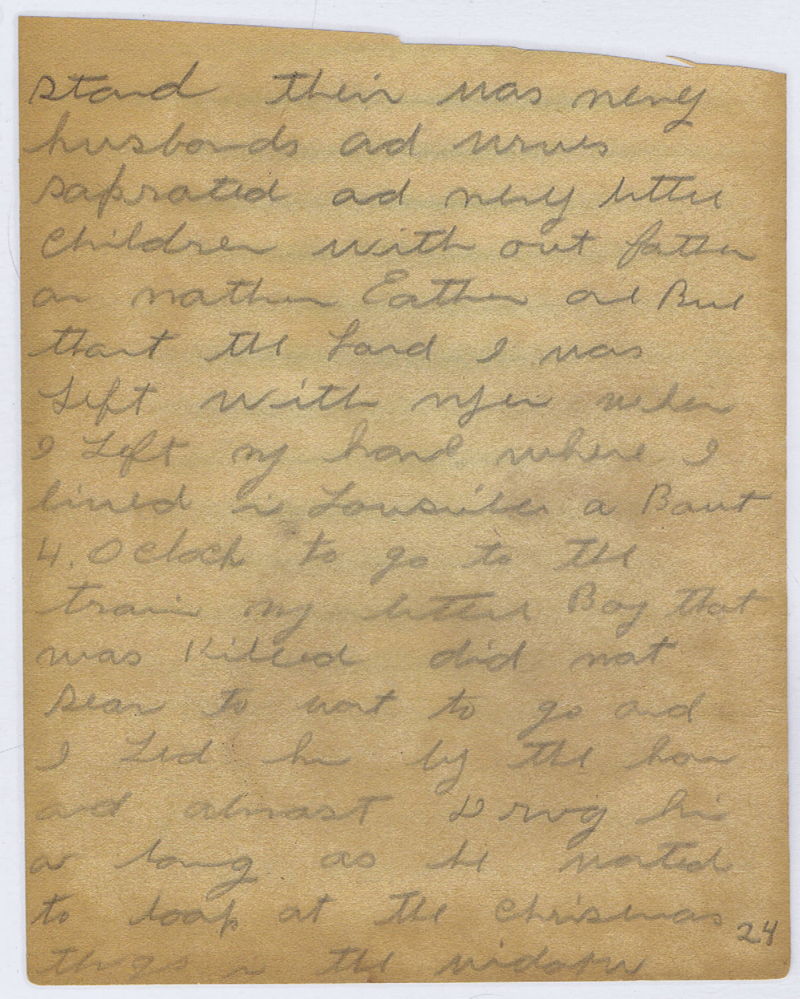 stand their was meny
husbonds ad wives
saprated ad meny little
children with out father
or mather Eather and But
thank the Lord I was
Left with when
I Left my home where I
lived in Louisville a Bout
4. O clock to go to the
train my little Boy that
was Killed did not
seam to want to go and
I Led him by the han
and almost Drug him
a long as he wated
to look at the Christmas
things in the widows
24